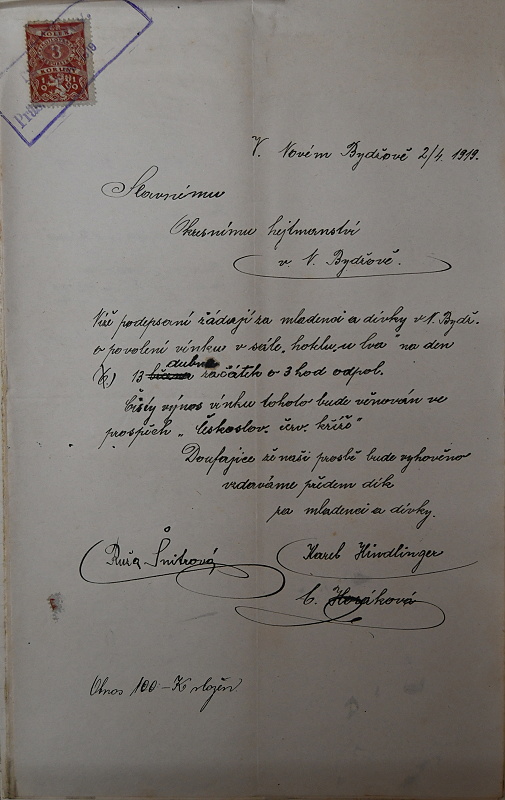 KOLEK
3
KORUNY
V. Novém Bydžově 2/4. 1919.
Slavnému
Okresnímu hejtmanství
v. N. Bydžově.
Níže podepsaní žádají za mladenci a dívky v N. Bydž.
o povolení vínku v sále „hotelu u lva" na den
dubna
13 března začátek o 3 hod odpol.
Čistý výnos vínku tohoto bude věnován ve
prospěch „Českoslov. červ. kříže"
Doufajíce že naší prosbě bude vyhověno
vzdáváme předem dík
za mladenci a dívky.
Růža Šnitrová
Karel Hindlinger
C. Horáková
Obnos 100 - K složen